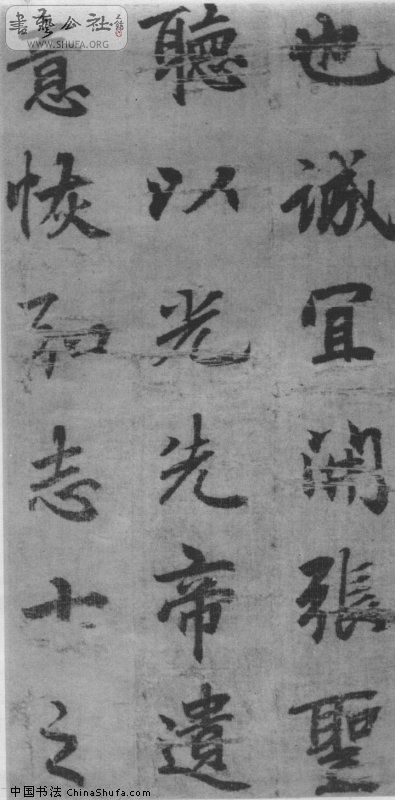 也誠宜開張聖
聽以光先帝遺
悳恢弘志士之
書藝公社
WWW.SHUFA.ORG
中国书法 ChinaShufa.com